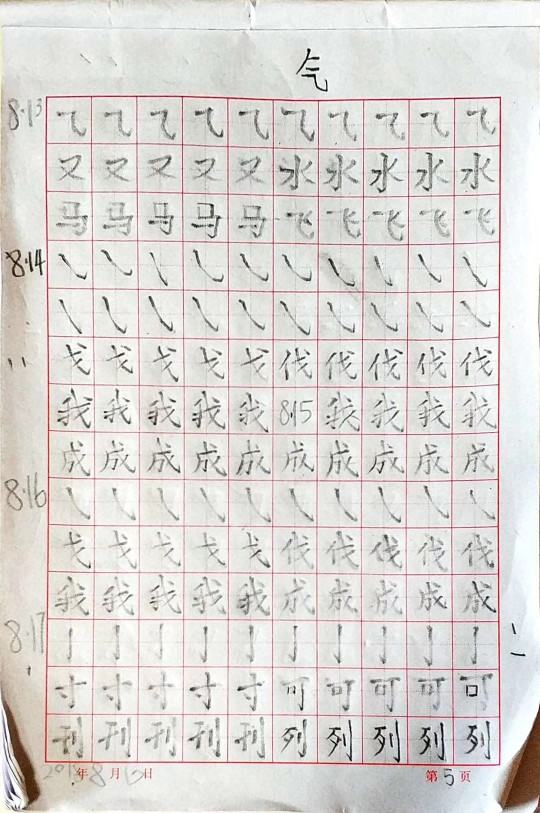 气
8·13 ⺄ ⺄ ⺄ ⺄ ⺄ ⺄ ⺄ ⺄ ⺄ ⺄
又 又 又 又 又 水 水 水 水 水
马 马 马 马 马 飞 飞 飞 飞 飞
8·14 ㇂ ㇂ ㇂ ㇂ ㇂ ㇂ ㇂ ㇂ ㇂ ㇂
㇂ ㇂ ㇂ ㇂ ㇂ ㇂ ㇂ ㇂ ㇂ ㇂
戈 戈 戈 戈 戈 伐 伐 伐 伐 伐
我 我 我 我 我 8·15 我 我 我 我
成 成 成 成 成 成 成 成 成 成
8·16 ㇂ ㇂ ㇂ ㇂ ㇂ ㇂ ㇂ ㇂ ㇂ ㇂
戈 戈 戈 戈 戈 伐 伐 伐 伐 伐
我 我 我 我 我 成 成 成 成 成
8·17 亅 亅 亅 亅 亅 亅 亅 亅 亅 亅
寸 寸 寸 寸 寸 可 可 可 可 可
刊 刊 刊 刊 刊 列 列 列 列 列
年8月 日 第5页